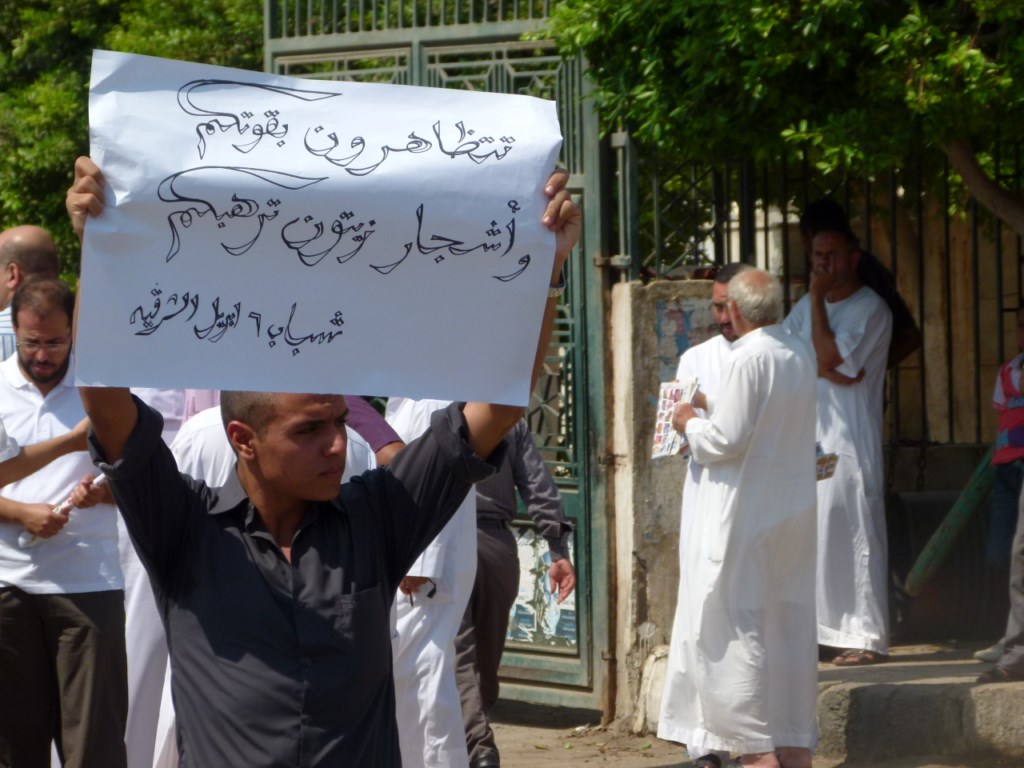 تتظاهرون بقوتكم
وأشجار زيتون ترهبكم
شباب ٦ ابريل الشرقيه